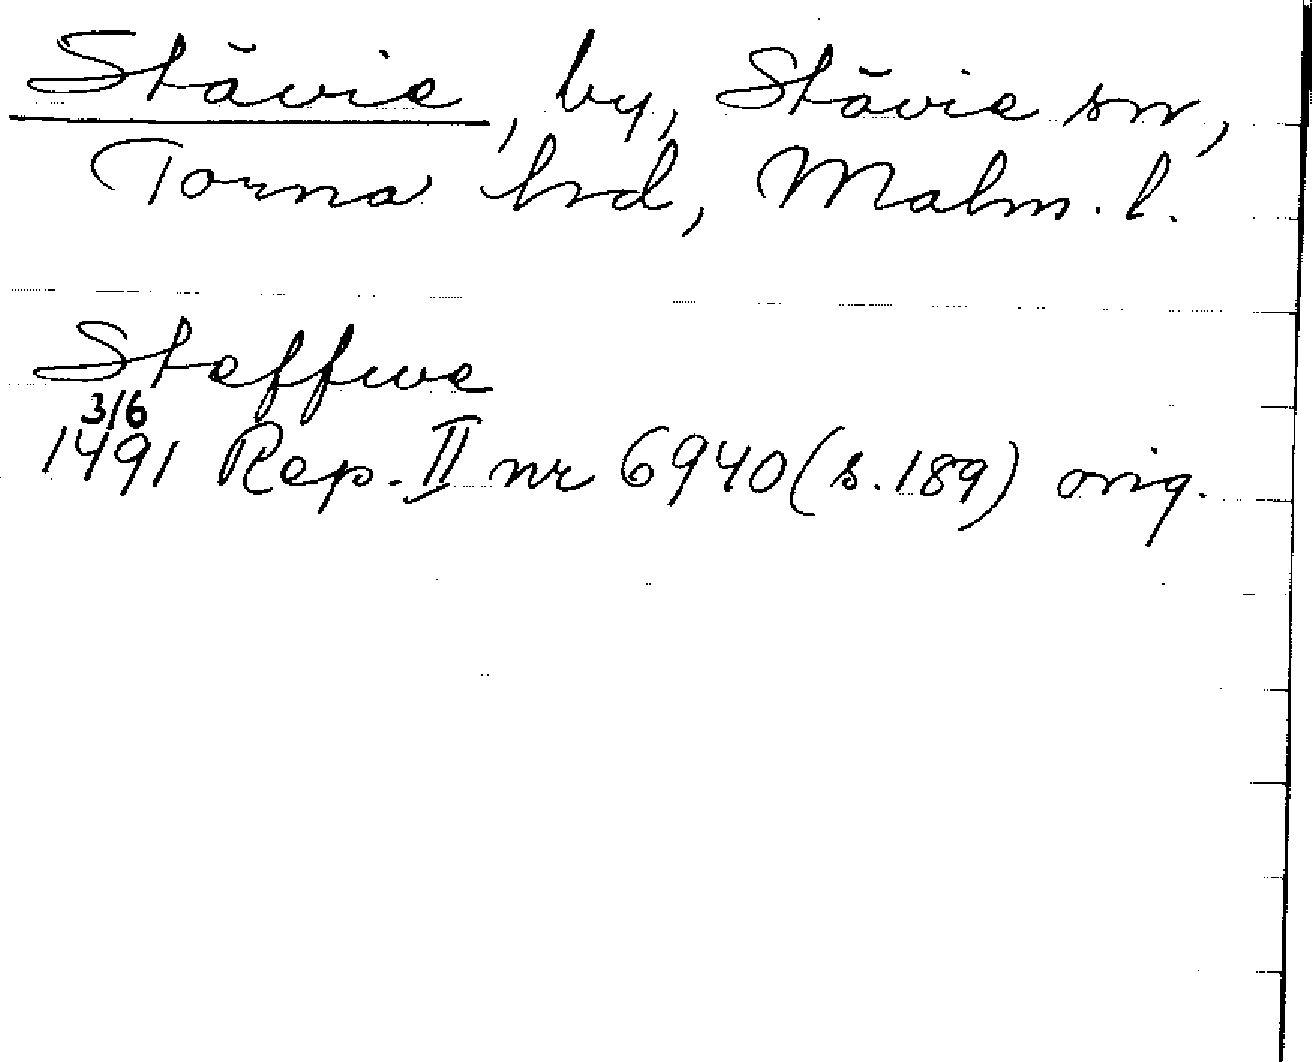 Stävie, by, Stävie sn,
Torna hrd, Malm. l.
Steffwe
3/6
1491 Rep. II nr 6940 (s. 189) orig.